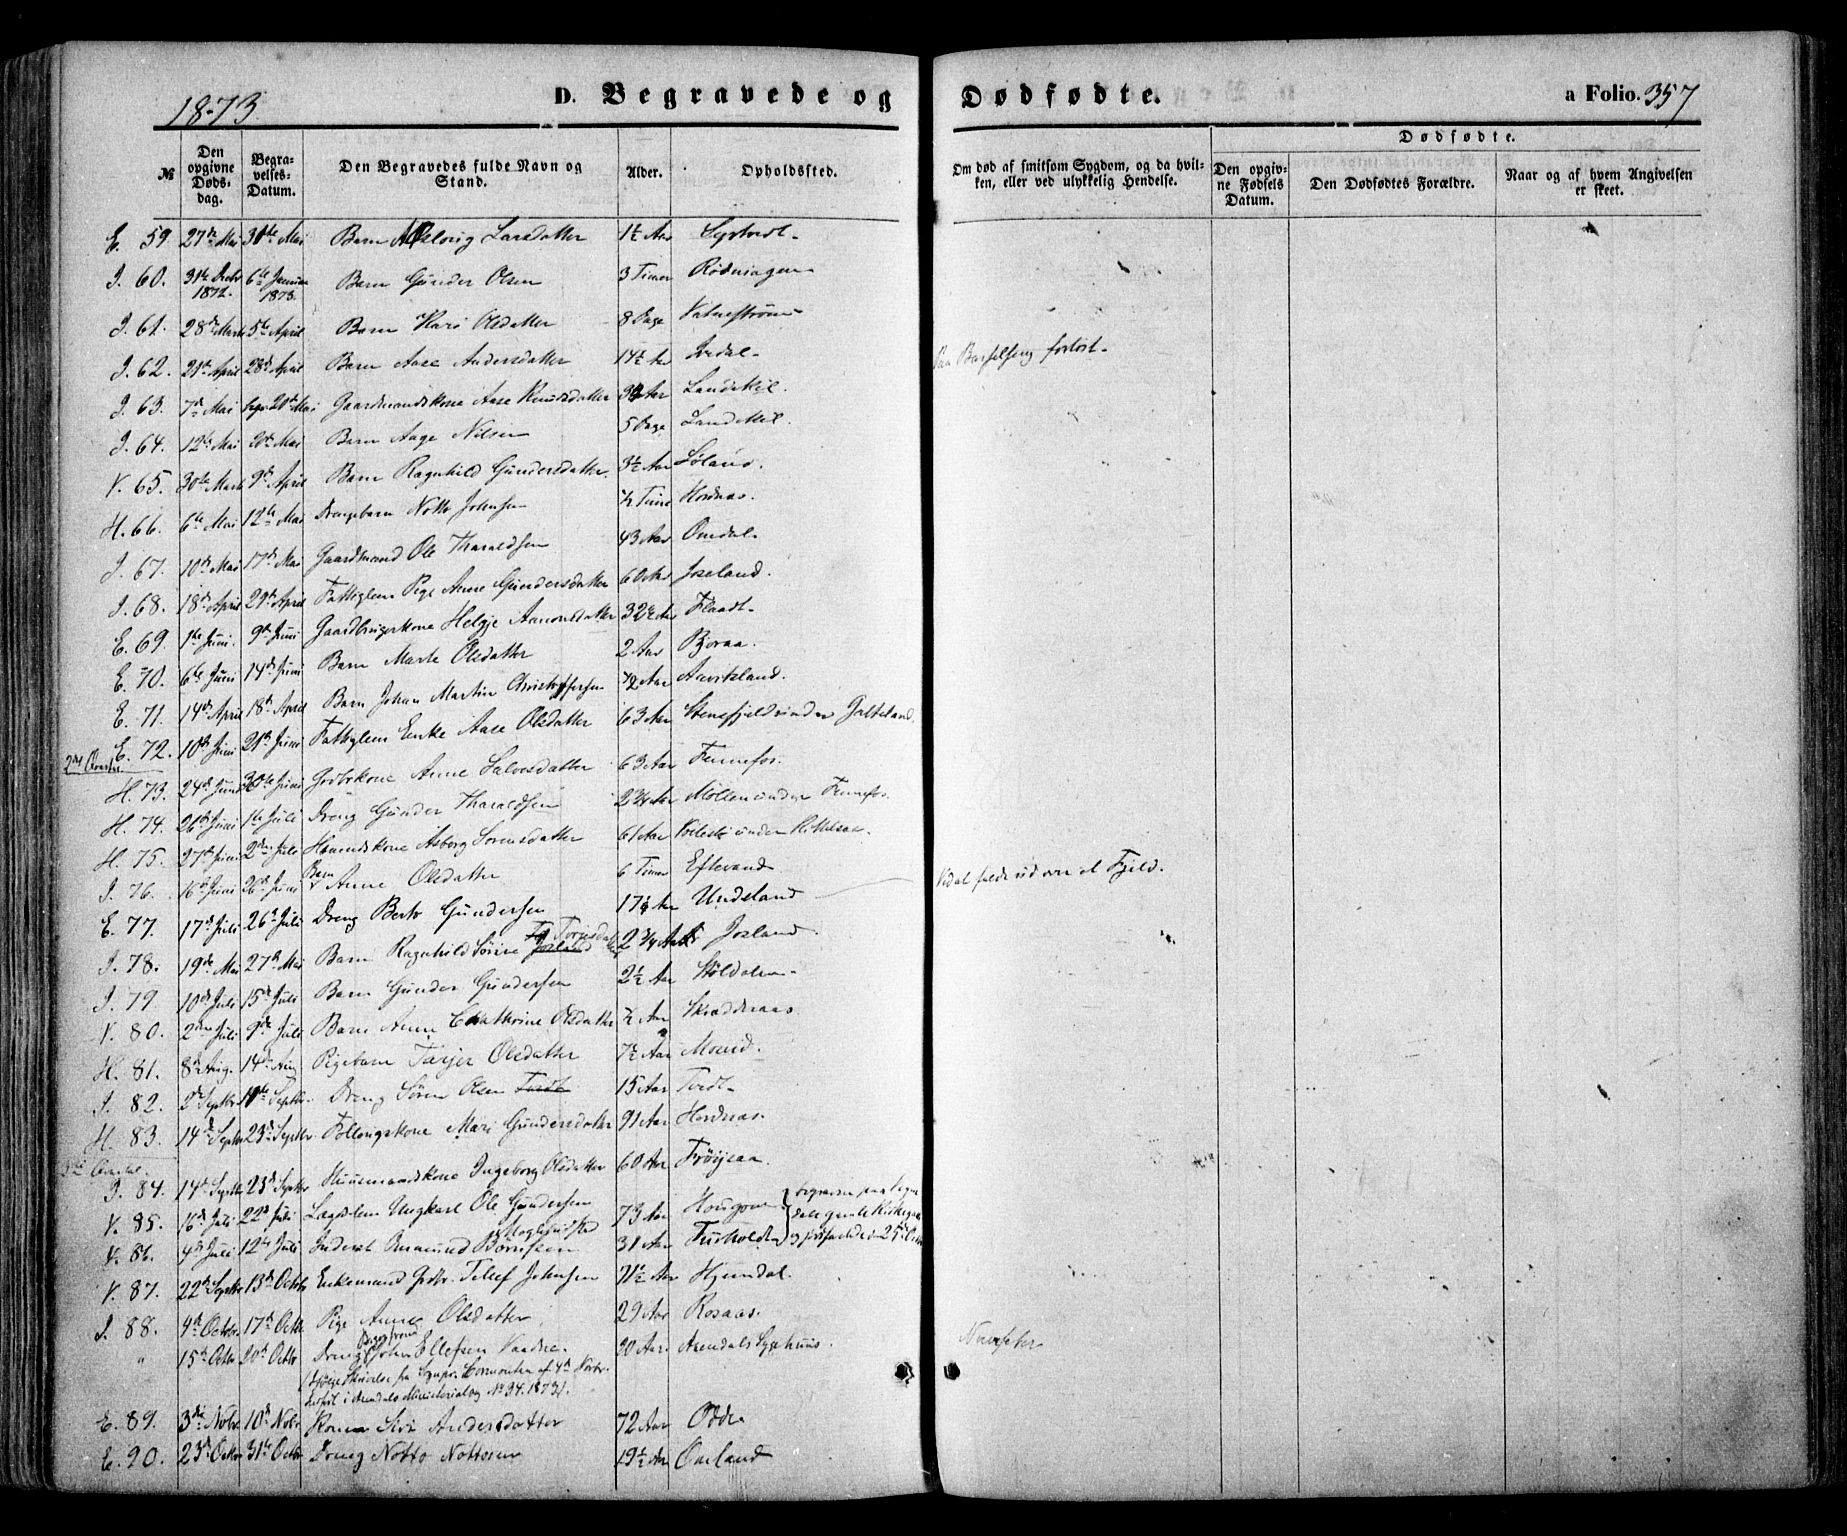 1873.
D. Begravede og Dødfødte.
a Folio. 357
№
Den opgivne Døds-dag.
Begra-velses-Datum.
Den Begravedes fulde Navn og Stand.
Alder.
Opholdssted.
Om død af smitsom Sygdom, og da hvil-ken, eller ved ulykkelig Hendelse.
Dødfødte.
Den opgiv-ne Fødsels Datum.
Den Dødfødtes Forældre.
Naar og af hvem Angivelsen er skeet.
E. 59 27de Mai 30te Mai Barn Asloug Larsdatter 1½ Aar
I. 60. 31te Decbr 1872. 6te Januar 1873. Barn Gunder Olsen 3 Timer
I. 61. 28de Marts 5te April Barn Kari Olsdatter 8 Dage Vatnestrøm
I. 62. 21de April 28de April Barn Aase Andersdatter 14½ Aar Ivedal
I. 63. 7de Mai 20de Mai Gaardmandskone Aase Knudsdatter 34 Aar Landskil. Paa Barselseng forløst
I. 64. 12te Mai 20de Mai Barn Aage Nilsen 5 Dage Landskil.
V. 65. 30te Marts 9de April Barn Ragnhild Gundersdatter 3½ Aar
H. 66. 6te Mai 12te Mai Drengebarn Notto Johnsen ½ Time Hordnæs.
I. 67. 10de Mai 17de Mai Gaardmand Ole Tharaldsen 43 Aar Omdal
I. 68. 18de April 29de April Fattiglem Pige Anne Gundersdatter 60 Aar Joreland.
E. 69. 1ste Juni. 9de Juni Gaardbrugerkone Helje Aanonsdatter 32½ Aar Flaadt
E. 70. 6te Juni 14de Juni Barn Marte Olsdatter 2 Aar Bjoraa.
E. 71. 14de April 18de April Barn Johan Martin Christoffersen ½ Aar Aavitsland.
E. 72. 10de Juni 21de Juni Fattiglem Enke Aase Olsdatter 63 Aar Stenesfjeld under Galteland.
2det Qvartal
H. 73. 24de Juni 30te Juni Grdbrkone Anne Salvesdatter 63 Aar Fennefos.
H. 74. 26de Juni 1ste Juli Dreng Gunder Tharaldsen 2¾ Aar Møllen under Fennefos.
H. 75. 27de Juni 2den Juli Huusmandskone Asborg Sørensdatter 61 Aar
I. 76. 16de Juni 26de Juni Barn Anne Olsdatter 6 Timer Eftevand
E. 77. 17de Juli 26de Juli Dreng Berte Gundersen 17½ Aar Undeland Vidal faldt ud over et Fjeld.
I. 78. 19de Mai 27de Mai Barn Ragnhild Sørine 2¾ Aar Josland.
I. 79. 10de Juli 15de Juli Barn Gunder Gundersen 2½ Aar Støldalen
V. 80. 2den Juli 9de Juli Barn Anne Cathrine Olsdatter ½ Aar
H. 81. 8de Aug. 14de Aug Pigebarn Tarjer Olsdatter 7½ Aar Moseid.
I. 82. 2de Septbr 10de Septbr. Dreng Søren Olsen Tveidt 15 Aar Tveidt
H. 83. 14de Septbr 23de Septbr. Follougskone Mari Gundersdatter 91 Aar Hordnæs.
3die Qvartal.
I. 84. 14de Septbr 23de Septbr Huusmandskone Ingeborg Olsdatter 60 Aar Frøysaa.
V. 85. 16de Juli 22de Juli Lægdslem Ungkarl Ole Gundersen 73 Aar Hougom begraven paa Vegus-dals gamle Kirkegaard
V. 86. 4de Juli 12te Juli Inderst Osmund Børnsen 31 Aar
V. 87. 22de Septbr 13de Octbr Enkemand Grdbr. Tellef Johnsen 71½ Aar Hjemdal.
I. 88. 9de Octbr. 17de Octbr Pige Anne Olsdatter 29 Aar Rosaas.
" 15de Octbr 20de Octbr Dreng John Ellefsen Vaadne 20 Aar. Arendals Sygehuus. Nervefeber
(ifølge Skrivelse fra Sognepr. af 4de Novbr.
i Arendals Ministerialbog № 34. 1873).
E. 89. 3die Novbr 10de Novbr Konen Siri Andersdatter 72 Aar Odde
E. 90. 23de Octbr 31te Octbr Dreng Notto Nottosen 19½ Aar